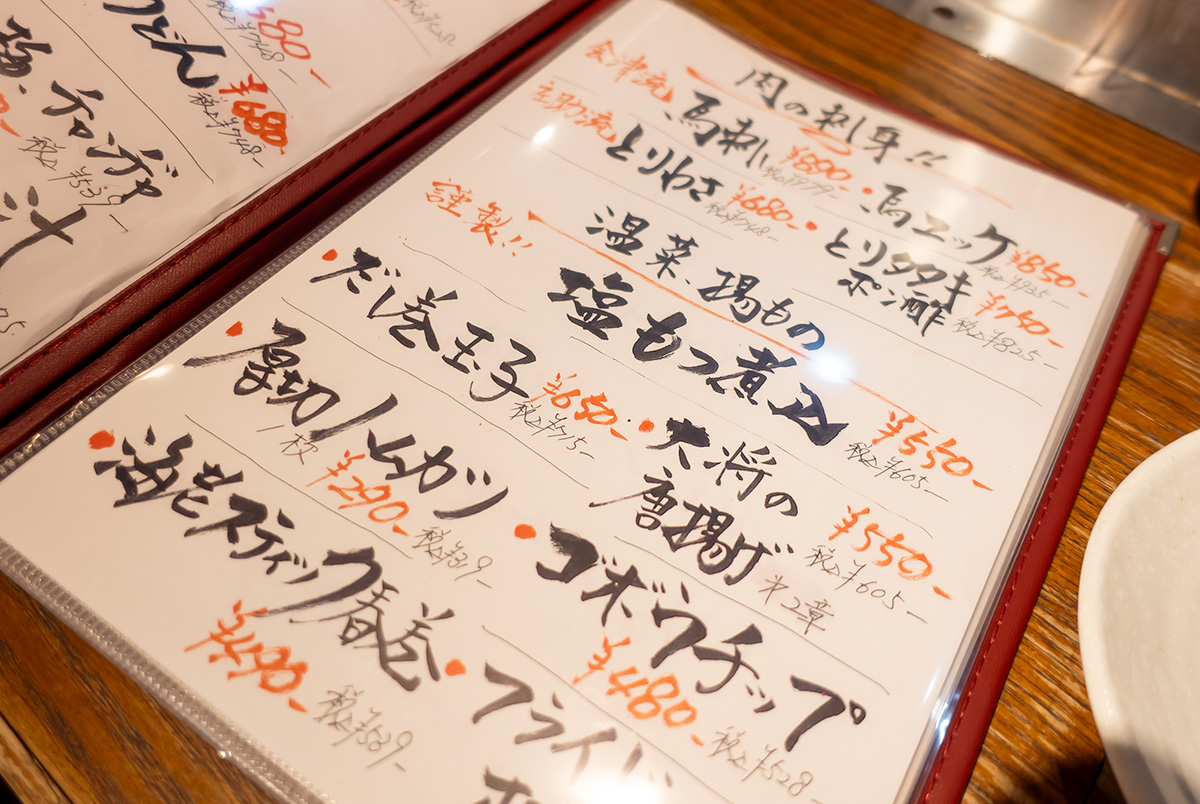 うどん
¥680-
税込¥748-
チャンヂャ
税込¥539-
汁
肉の刺し身!!
会津流
馬刺し ¥890-
税込¥979-
・馬ユッケ ¥850-
税込¥935-
庄助流
とりわさ ¥680-
税込¥748-
・とりタタキ
ポン酢 ¥750-
税込¥825-
謹製!!
温菜、揚もの
塩もつ煮込 ¥550-
税込¥605-
・だし巻玉子 ¥650-
税込¥715-
・大将の
唐揚げ 第2章
¥550-
税込¥605-
・厚切ハムカツ
1枚 ¥290-
税込¥319-
・ゴボウチップ
¥480-
税込¥528
・海老スティック春巻
¥490-
税込¥539-
・フライド